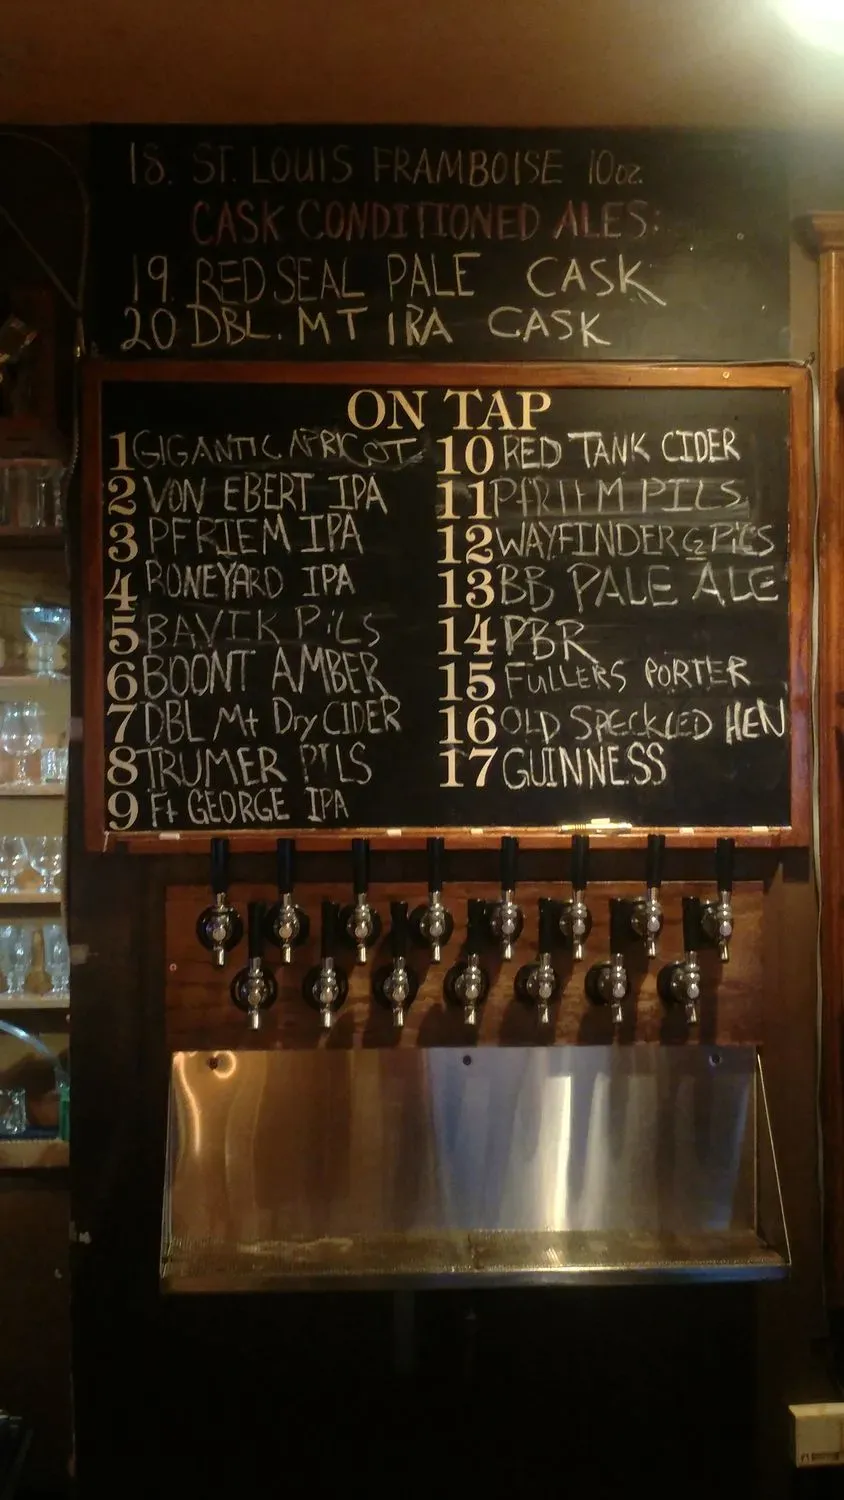 18. ST. LOUIS FRAMBOISE 10oz.
CASK CONDITIONED ALES:
19. RED SEAL PALE CASK
20 DBL. MT IRA CASK
ON TAP
1 GIGANTIC APRICOT
2 VON EBERT IPA
3 PFRIEM IPA
4 RONEYARD IPA
5 BAVIK PiLS
6 BOONT AMBER
7 DBL Mt Dry CIDER
8 TRUMER PILS
9 Ft GEORGE IPA
10 RED TANK CIDER
11 PFRIEM PILS
12 WAYFINDER PiLS
13 BB PALE ALE
14 PBR
15 FULLERS PORTER
16 OLD SPECKLED HEN
17 GUINNESS